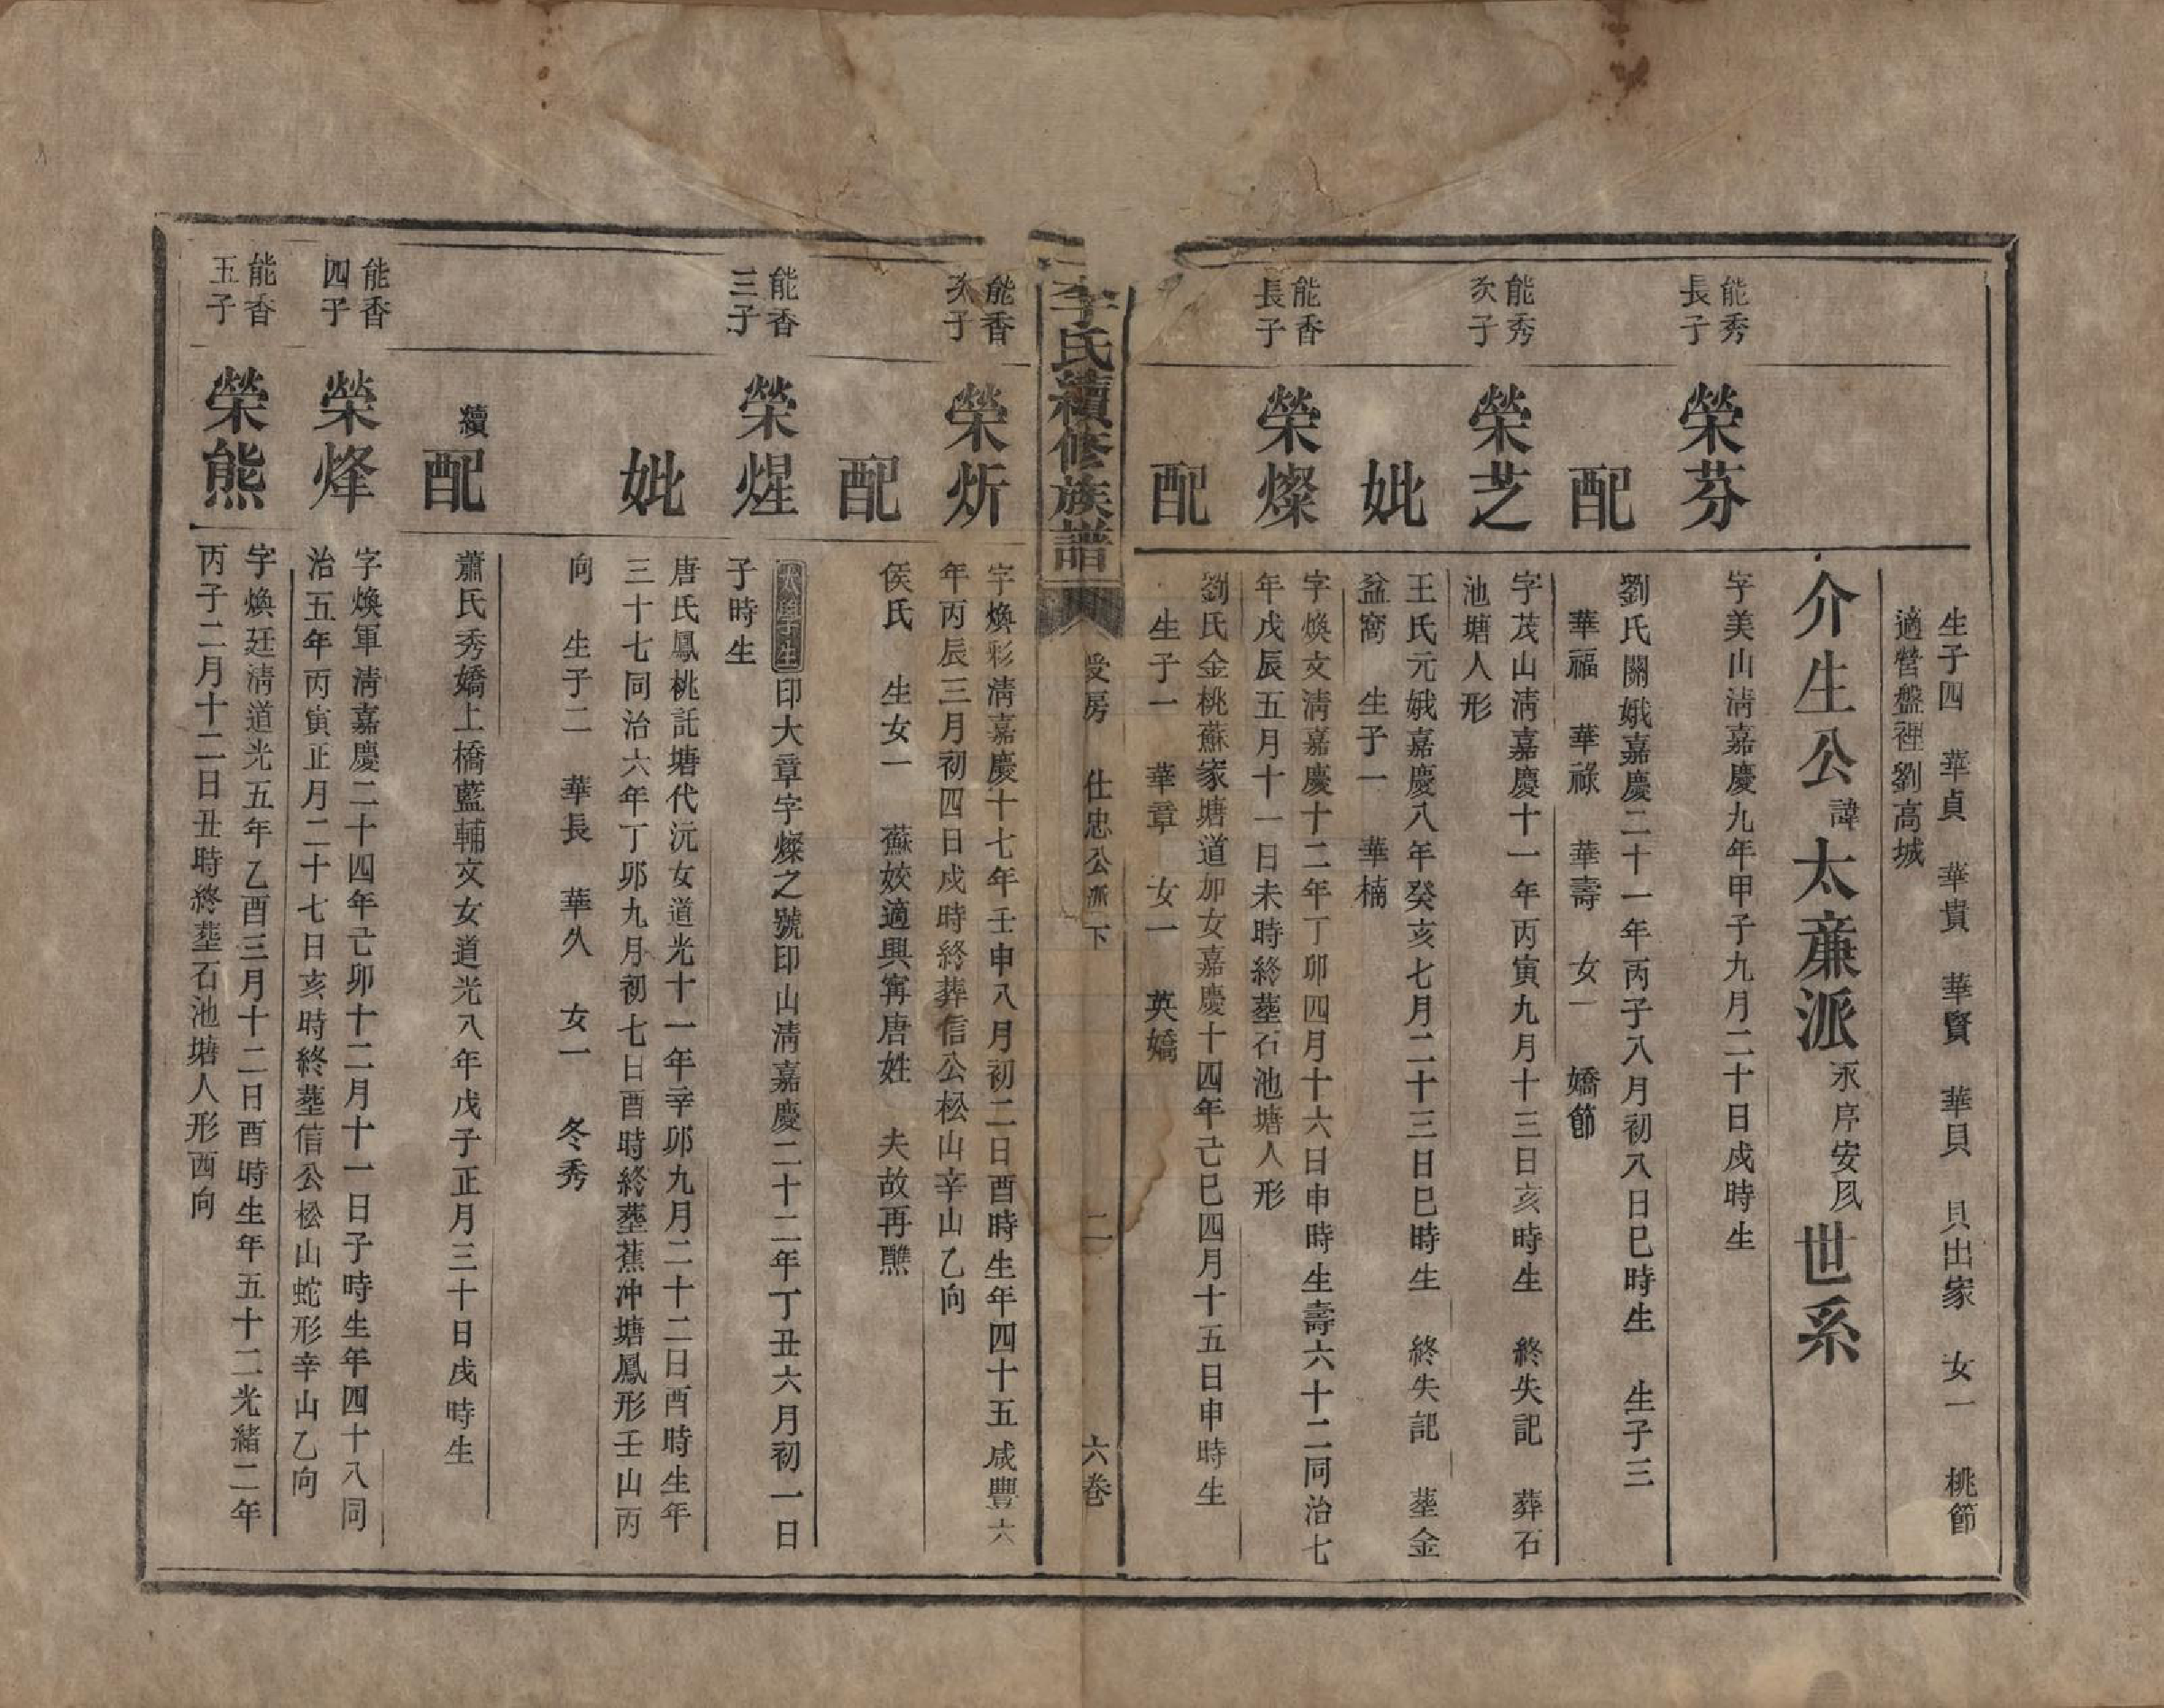 生子四 華貞 華貴 華賢 華貝 貝出家 女一 桃節
適營盤裡劉高城
介生公諱太亷派永序安凨世系
能秀
長子
榮芬
字美山淸嘉慶九年甲子九月二十日戍時生
配
劉氏闌娥嘉慶二十一年丙子八月初八日巳時生 生子三
華福 華祿 華壽 女一 嬌節
能秀
次子
榮芝
字茂山淸嘉慶十一年丙寅九月十三日亥時生 終失記 葬石
池塘人形
妣
王氏元娥嘉慶八年癸亥七月二十三日巳時生 終失記 塟金
盆窩 生子一 華楠
能香
長子
榮燦
字煥文淸嘉慶十二年丁卯四月十六日申時生壽六十二同治七
年戊辰五月十一日未時終塟石池塘人形
配
劉氏金桃蘇家塘道加女嘉慶十四年己巳四月十五日申時生
生子一 華章 女一 英嬌
李氏續修族譜
受房 仕忠公派下
二
六卷
能香
次子
榮炘
字煥彩淸嘉慶十七年壬申八月初二日酉時生年四十五咸豐六
年丙辰三月初四日戍時終葬信公松山辛山乙向
配
侯氏 生女一 蘇姣適興寗唐姓 夫故再醮
能香
三子
榮煋
太學生印大章字燦之號印山淸嘉慶二十二年丁丑六月初一日
子時生
妣
唐氏鳳桃託塘代沅女道光十一年辛卯九月二十二日酉時生年
三十七同治六年丁卯九月初七日酉時終塟蕉冲塘鳳形壬山丙
向 生子二 華長 華久 女一 冬秀
續配
蕭氏秀嬌上橋藍輔文女道光八年戊子正月三十日戌時生
能香
四子
榮烽
字煥軍淸嘉慶二十四年己卯十二月十一日子時生年四十八同
治五年丙寅正月二十七日亥時終塟信公松山蛇形辛山乙向
能香
五子
榮熊
字煥廷淸道光五年乙酉三月十二日酉時生年五十二光緒二年
丙子二月十二日丑時終塟石池塘人形酉向